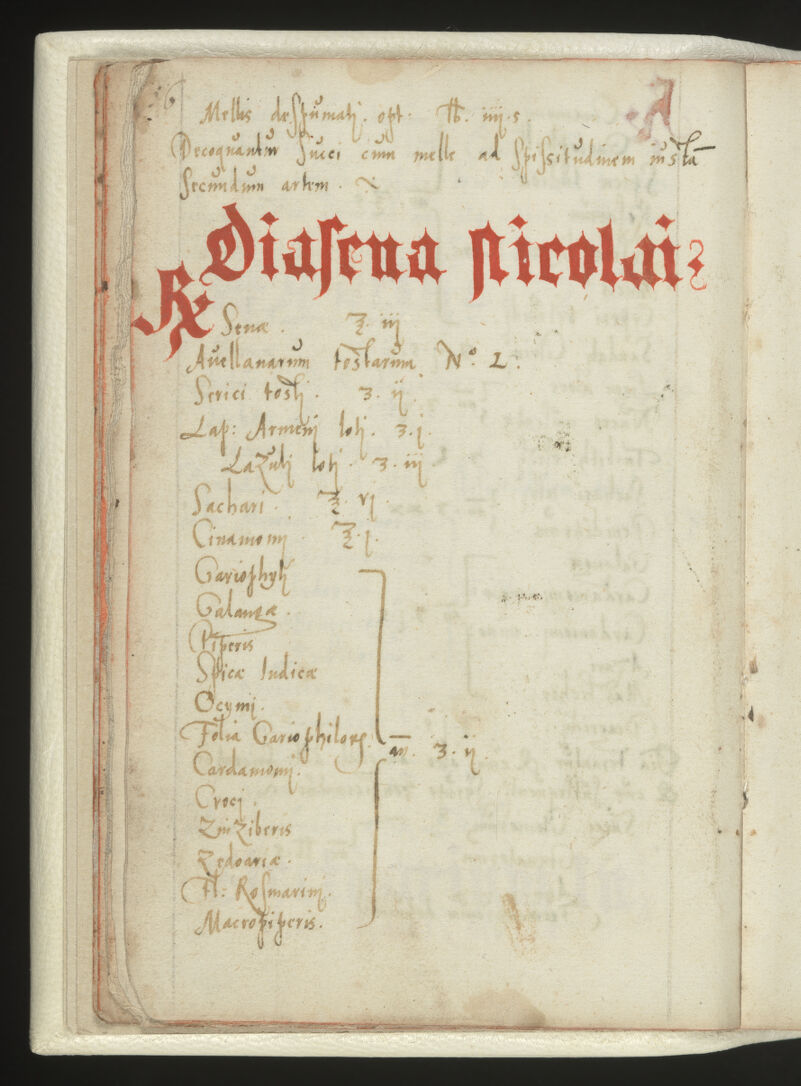 6
A
Mellis despumatj. opt. ℔. iiij. s.
Decoquantur succi cum melle ad spissitudinem iustā
secundum artem.
Diasena Nicolai
℞
Senæ. ℥. iij
Auellanarum tostarum. Nº. L.
Serici tostj. ʒ. ij.
Lap: Armenj lotj. ʒ. j.
Lazulj lotj. ʒ. iij
Sachari. ℥. vj
Cinamomj. ℥. j.
Gariophylj
Galangæ.
Piperis
Spicæ Indicæ
Ocymj.
Folia Gariophiloꝝ. aā. ʒ. ij
Cardamomj.
Crocj.
Zinziberis
Zedoariæ.
Fl: Rosmarinj.
Macropiperis.